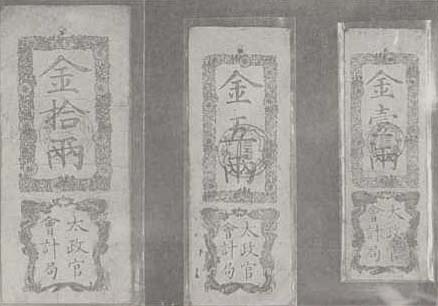 金拾兩
太政官
會計局
金五兩
太政官
會計局
金壹兩
太政官
會計局